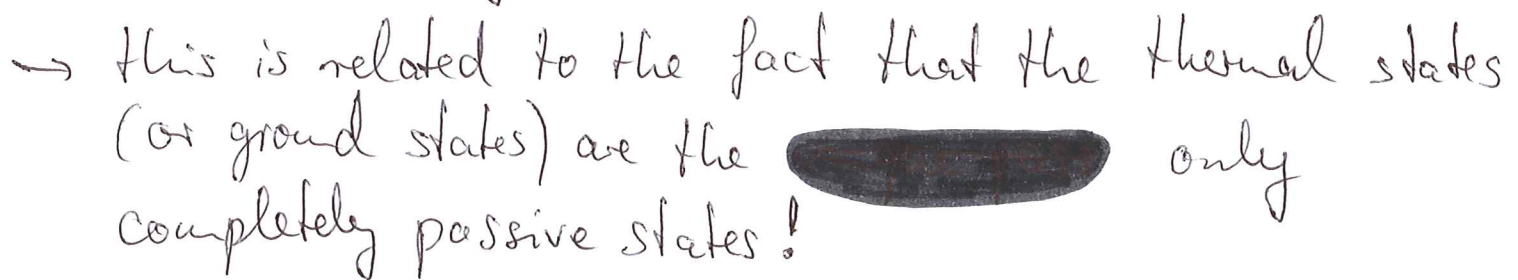 → this is related to the fact that the thermal states
(or ground states) are the only
completely passive states!